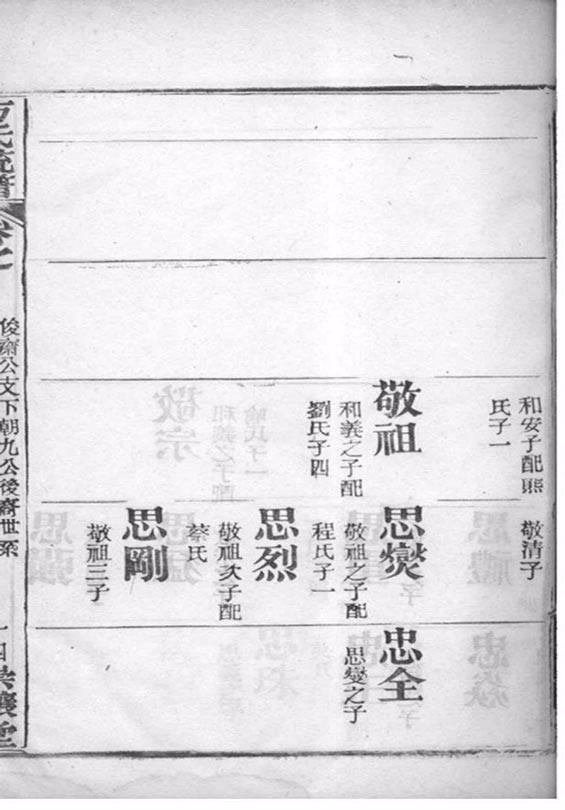 和安子配熊
氏子一
敬清子
敬祖
和義之子配
劉氏子四
思燮
敬祖之子配
程氏子一
忠全
思燮之子
思烈
敬祖次子配
蔡氏
思剛
敬祖三子
氏流譜
卷七
俊齋公文下朝九公後裔世系